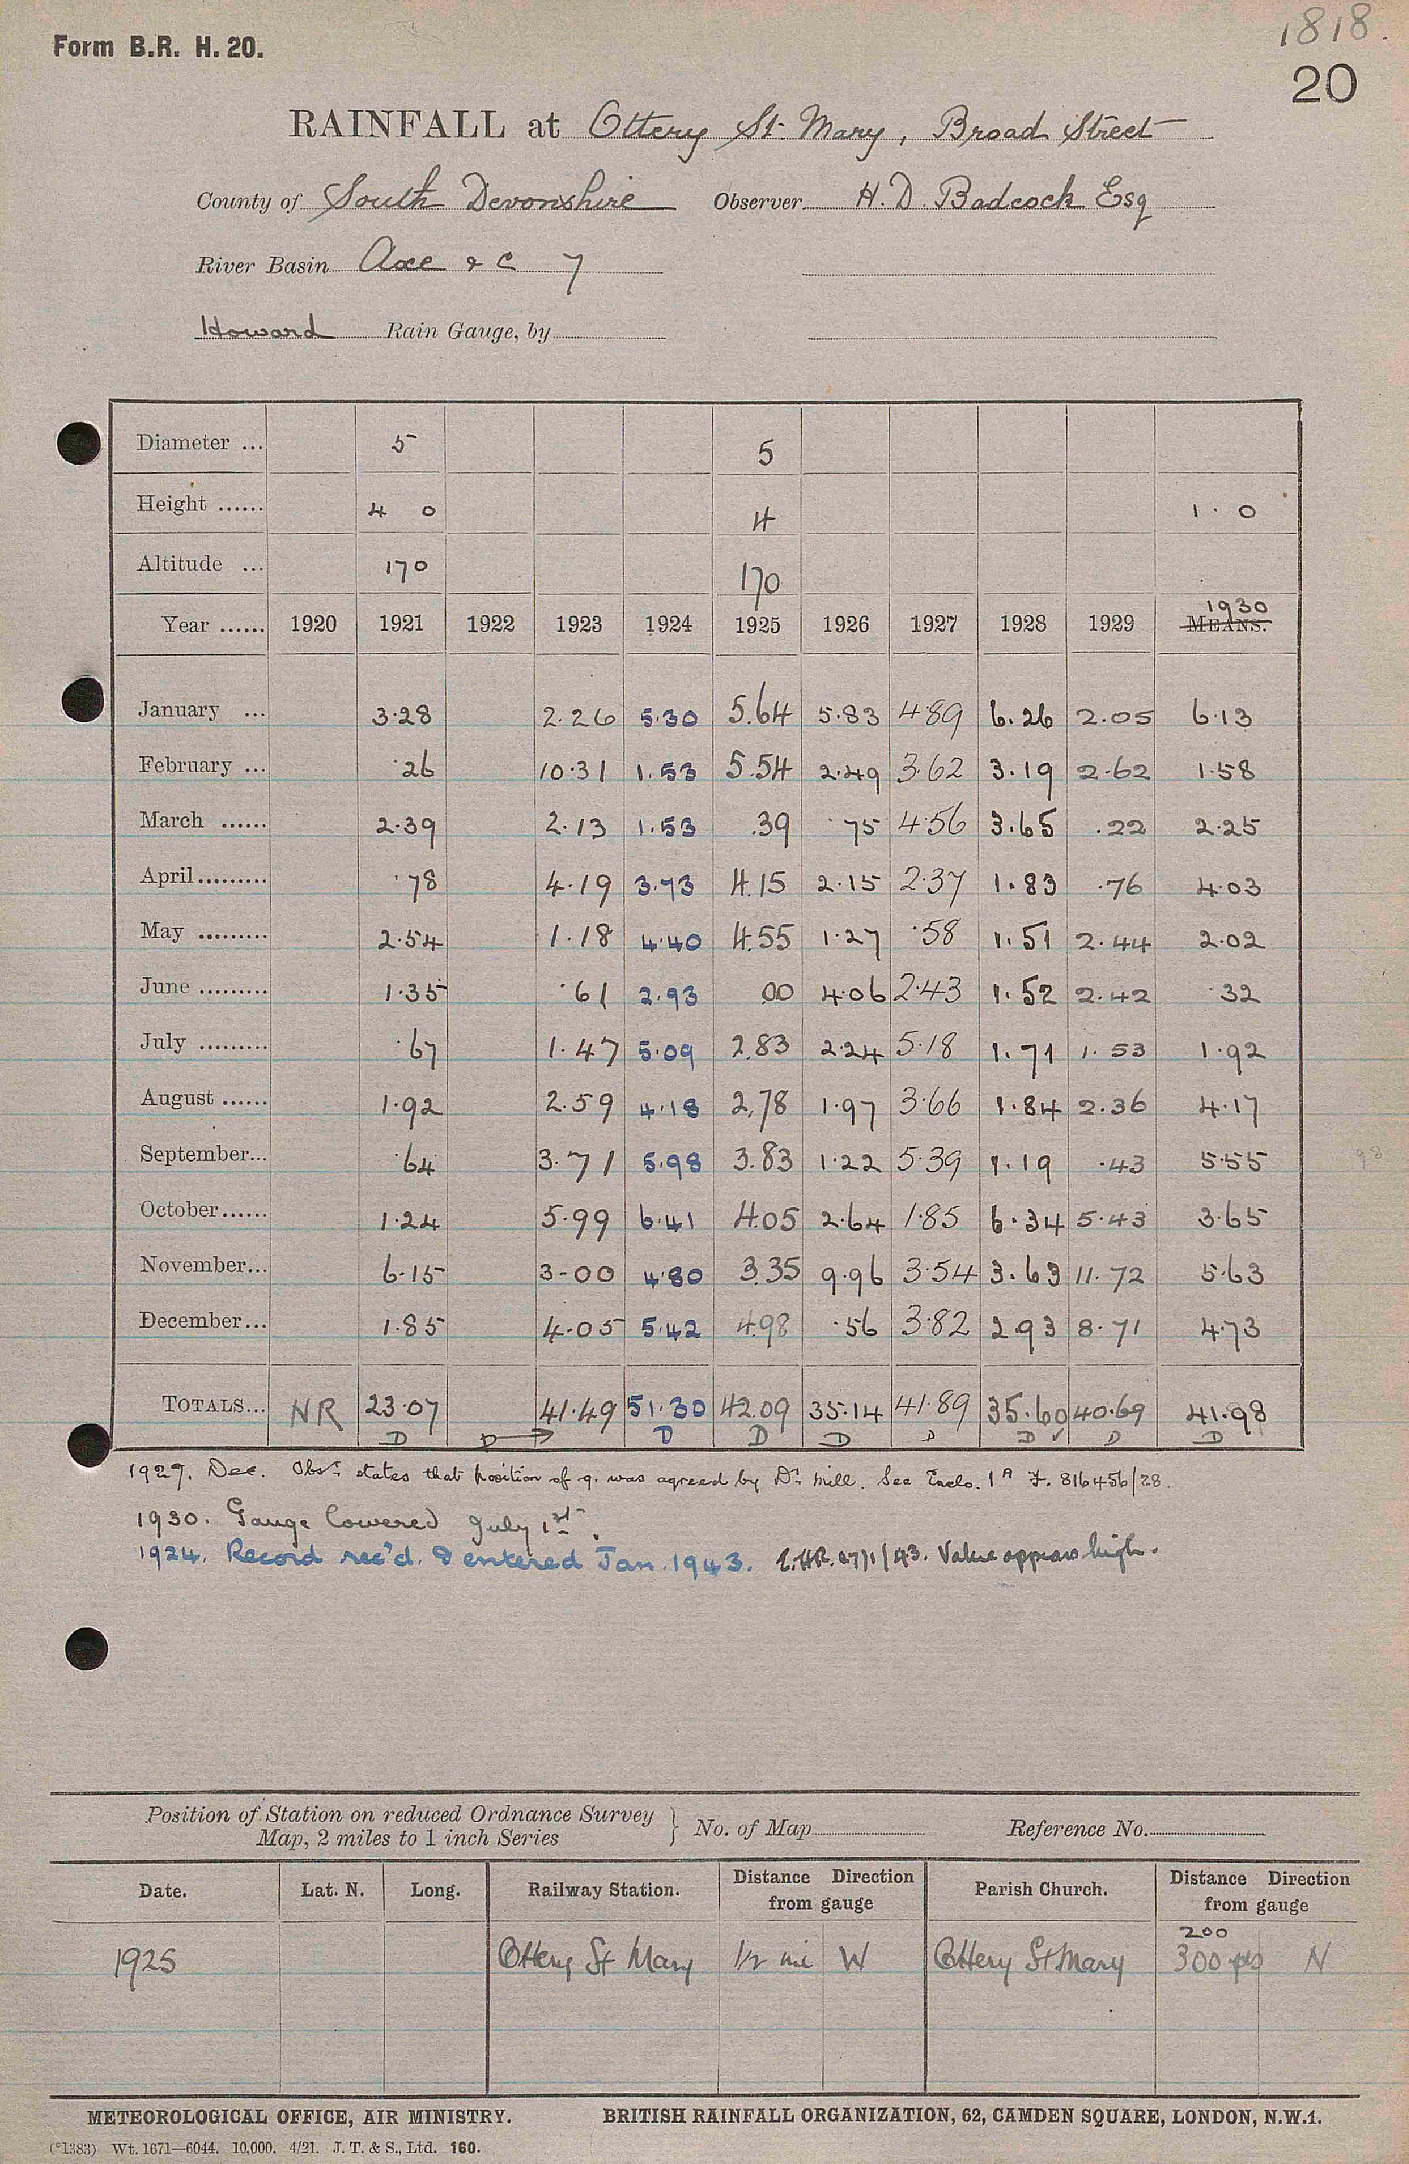 1818.
Form B.R. H. 20.
20
RAINFALL at Ottery St. Mary, Broad Street
County of South Devonshire Observer H. D. Badcock Esq
River Basin Axe & C 7
Howard Rain Gauge, by
Diameter ... 5 5
Height ...... 4 0 4 1 . 0
Altitude ... 170 170
1930
Year ...... 1920 1921 1922 1923 1924 1925 1926 1927 1928 1929 MEANS.
January ... 3.28 2.26 5.30 5.64 5.83 4.89 6.26 2.05 6.13
February ... .26 10.31 1.53 5.54 2.49 3.62 3.19 2.62 1.58
March ...... 2.39 2.13 1.53 .39 .75 4.56 3.65 .22 2.25
April......... .78 4.19 3.73 4.15 2.15 2.37 1.83 .76 4.03
May ......... 2.54 1.18 4.40 4.55 1.27 .58 1.51 2.44 2.02
June ......... 1.35 .61 2.93 00 4.06 2.43 1.52 2.42 .32
July ......... .67 1.47 5.09 2.83 2.24 5.18 1.71 1.53 1.92
August ...... 1.92 2.59 4.18 2.78 1.97 3.66 1.84 2.36 4.17
September... .64 3.71 5.98 3.83 1.22 5.39 1.19 .43 5.55
October...... 1.24 5.99 6.41 4.05 2.64 1.85 6.34 5.43 3.65
November... 6.15 3.00 4.80 3.35 9.96 3.54 3.63 11.72 5.63
December... 1.85 4.05 5.42 4.98 .56 3.82 2.93 8.71 4.73
TOTALS... NR 23.07 41.49 51.30 42.09 35.14 41.89 35.60 40.69 41.98
D D → D D D D D ✓ D D
1927. Dec. Obsr. states that position of g. was agreed by Dr. Mill. See Enclo. 1A F. 816456/28.
1930. Gauge lowered July 1st.
1924. Record rec'd. & entered Jan. 1943. 27/1/43. Value appears high.
Position of Station on reduced Ordnance Survey
Map, 2 miles to 1 inch Series } No. of Map Reference No.
Date. Lat. N. Long. Railway Station. Distance Direction from gauge Parish Church. Distance Direction from gauge
200
1925 Ottery St Mary 1/2 mi W Ottery St Mary 300 yds N
METEOROLOGICAL OFFICE, AIR MINISTRY. BRITISH RAINFALL ORGANIZATION, 62, CAMDEN SQUARE, LONDON, N.W.1.
(*1383) Wt. 1671—6044. 10,000. 4/21. J. T. & S., Ltd. 160.